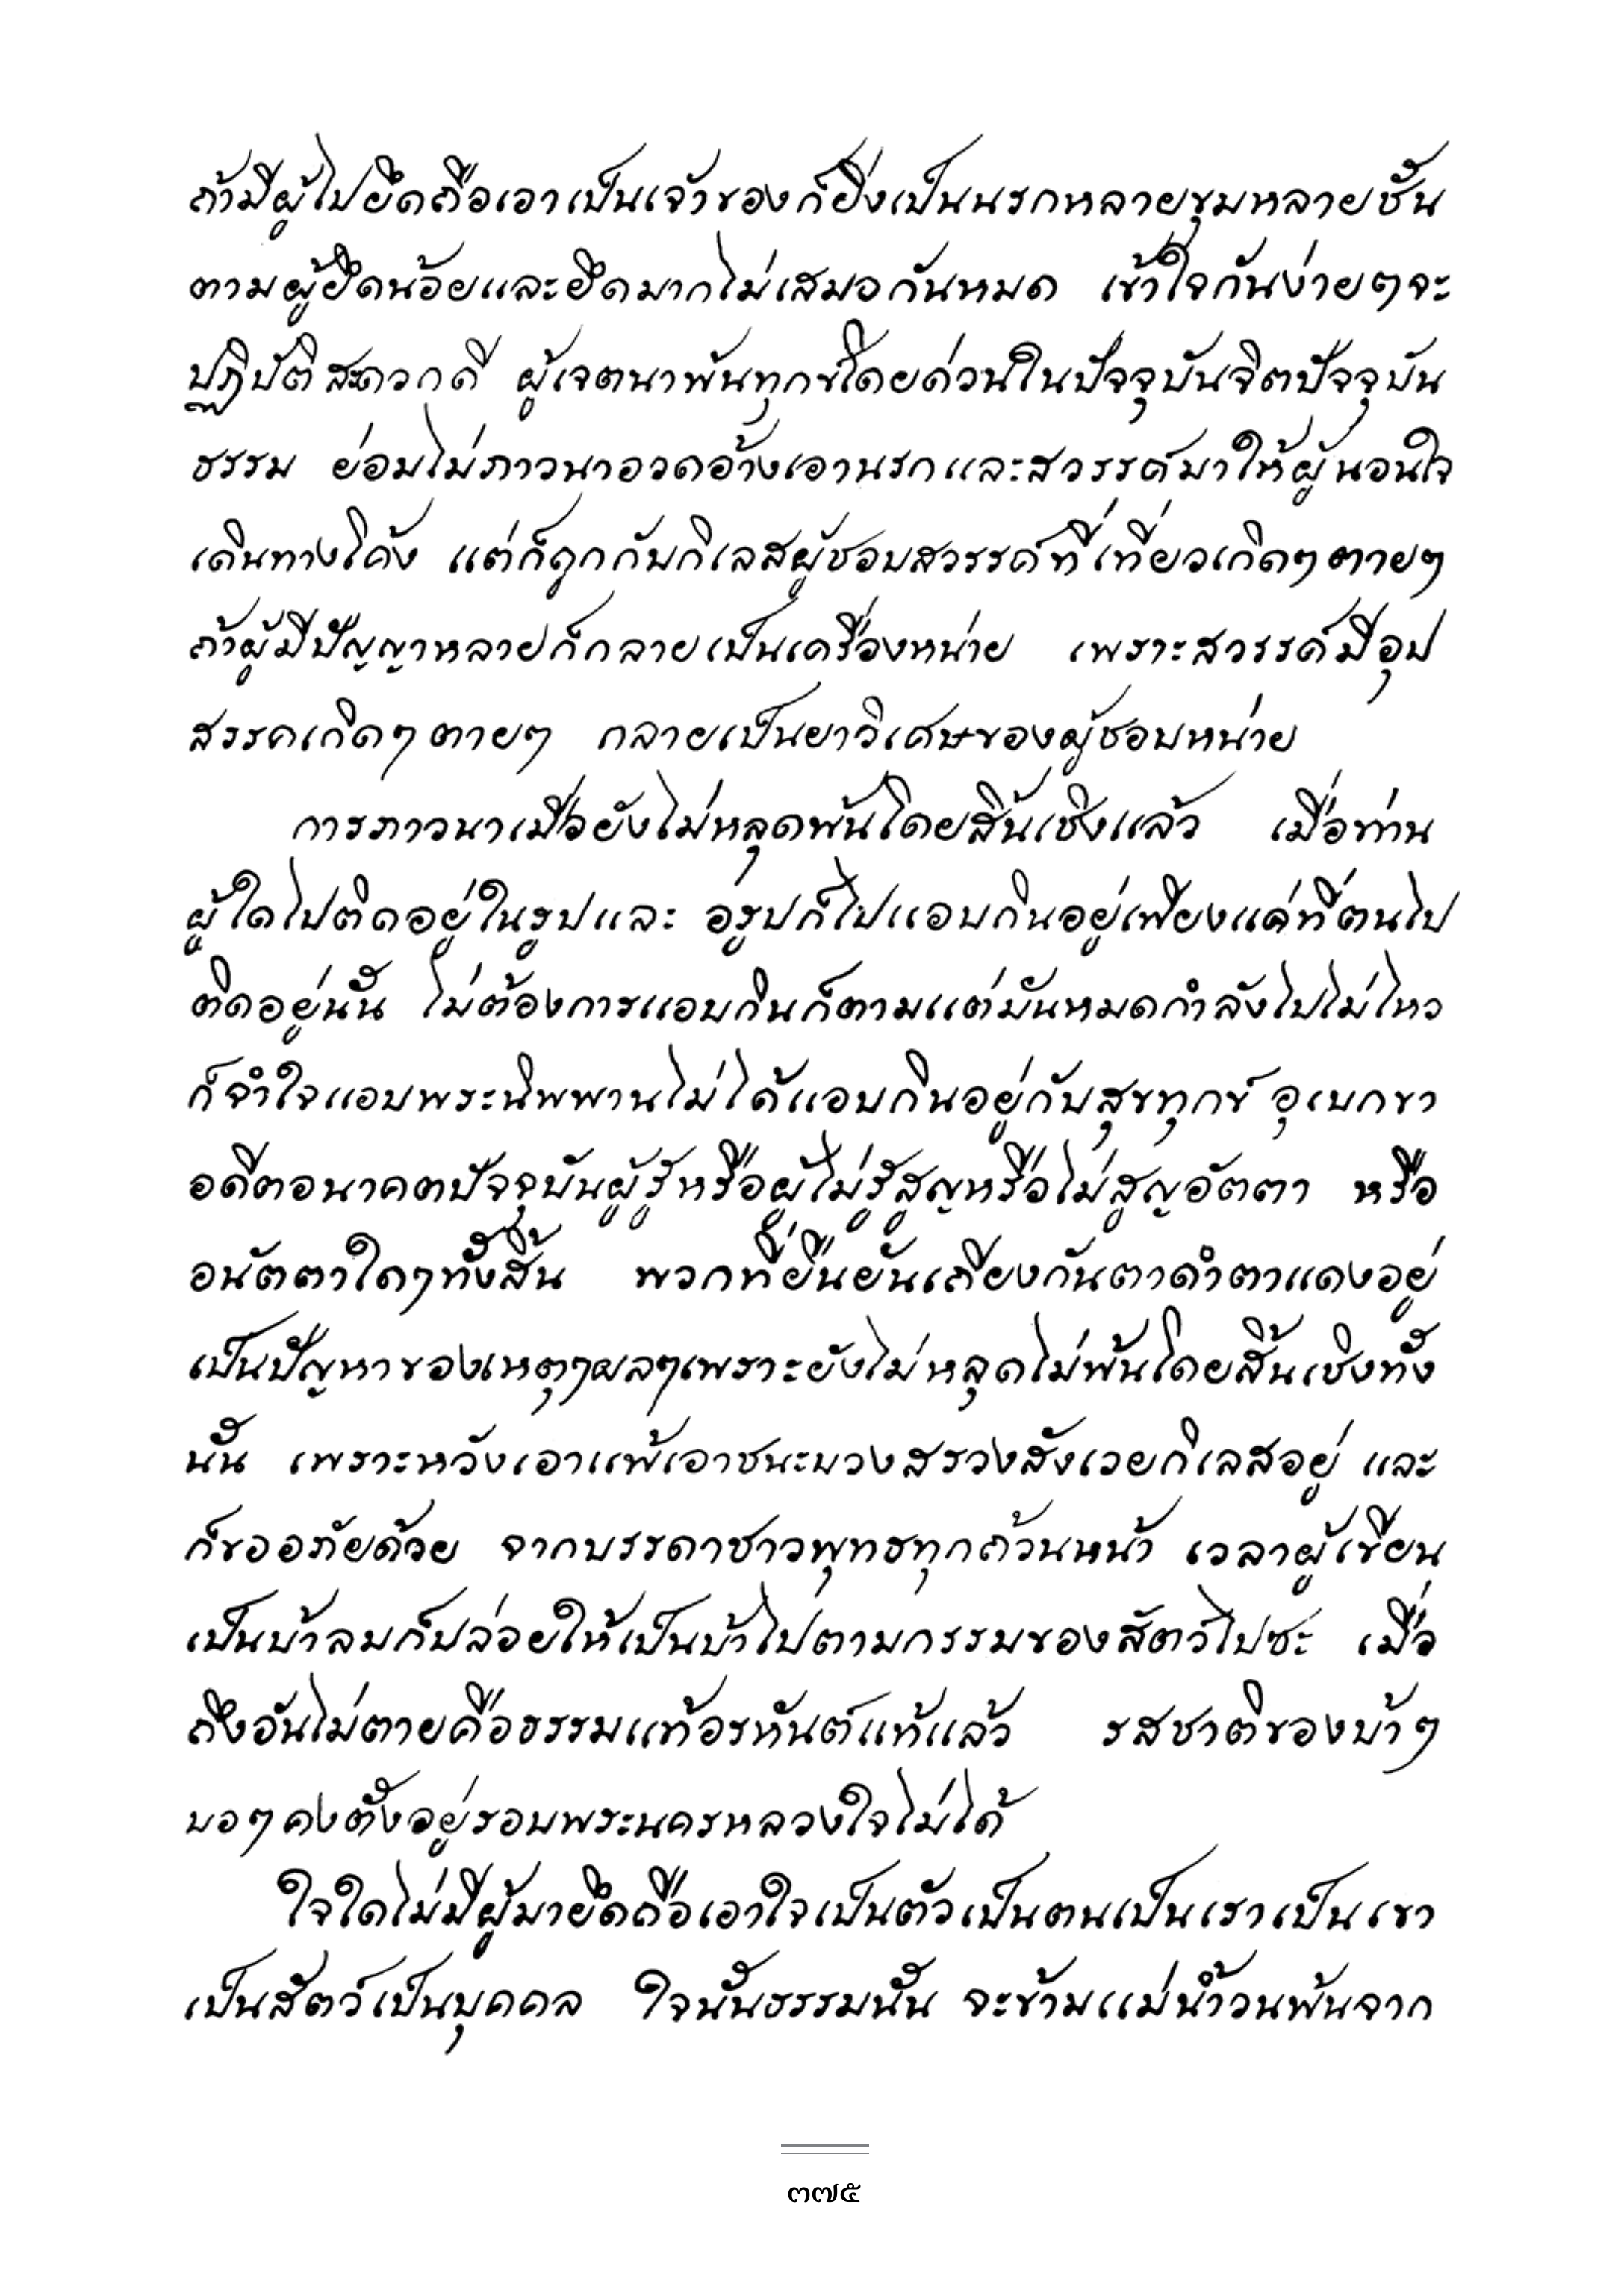 ถ้ามีผู้ไปยึดถือเอาเป็นเจ้าของก็ยิ่งเป็นนรกหลายขุมหลายชั้น
ตามผู้ยึดน้อยและยึดมากไม่เสมอกันหมด เข้าใจกันง่ายๆจะ
ปฏิบัติสะดวกดี ผู้เจตนาพ้นทุกข์โดยด่วนในปัจจุบันจิตปัจจุบัน
ธรรม ย่อมไม่ภาวนาอวดอ้างเอานรกและสวรรค์มาให้ผู้นอนใจ
เดินทางโค้ง แต่ก็ถูกกับกิเลสผู้ชอบสวรรค์ที่เที่ยวเกิดๆตายๆ
ถ้าผู้มีปัญญาหลายก็กลายเป็นเครื่องหน่าย เพราะสวรรค์มีอุป
สรรคเกิดๆตายๆ กลายเป็นยาวิเศษของผู้ชอบหน่าย
การภาวนาเมื่อยังไม่หลุดพ้นโดยสิ้นเชิงแล้ว เมื่อท่าน
ผู้ใดไปติดอยู่ในรูปและ อรูปก็ไปแอบกินอยู่เพียงแค่ที่ตนไป
ติดอยู่นั้น ไม่ต้องการแอบกินก็ตามแต่มันหมดกำลังไปไม่ไหว
ก็จำใจแอบพระนิพพานไม่ได้แอบกินอยู่กับสุขทุกข์ อุเบกขา
อดีตอนาคตปัจจุบันผู้รู้หรือผู้ไม่รู้สูญหรือไม่สูญอัตตา หรือ
อนัตตาใดๆทั้งสิ้น พวกที่ยืนยันเถียงกันตาดำตาแดงอยู่
เป็นปัญหาของเหตุๆผลๆเพราะยังไม่หลุดไม่พ้นโดยสิ้นเชิงทั้ง
นั้น เพราะหวังเอาแพ้เอาชนะบวงสรวงสังเวยกิเลสอยู่ และ
ก็ขออภัยด้วย จากบรรดาชาวพุทธทุกถ้วนหน้า เวลาผู้เขียน
เป็นบ้าลมก็ปล่อยให้เป็นบ้าไปตามกรรมของสัตว์ไปซะ เมื่อ
ถึงอันไม่ตายคือธรรมแท้อรหันต์แท้แล้ว รสชาติของบ้าๆ
บอๆคงตั้งอยู่รอบพระนครหลวงใจไม่ได้
ใจใดไม่มีผู้มายึดถือเอาใจเป็นตัวเป็นตนเป็นเราเป็นเขา
เป็นสัตว์เป็นบุคคล ใจนั้นธรรมนั้น จะข้ามแม่น้ำวนพ้นจาก
๓๗๕